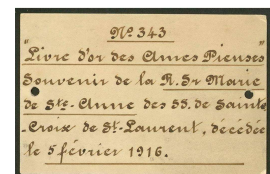 No 343
"Livre d'or des Ames Pieuses"
Souvenir de la R. Sr Marie
de Ste-Anne des SS. de Sainte
-Croix de St-Laurent, décédée
le 5 février 1916.